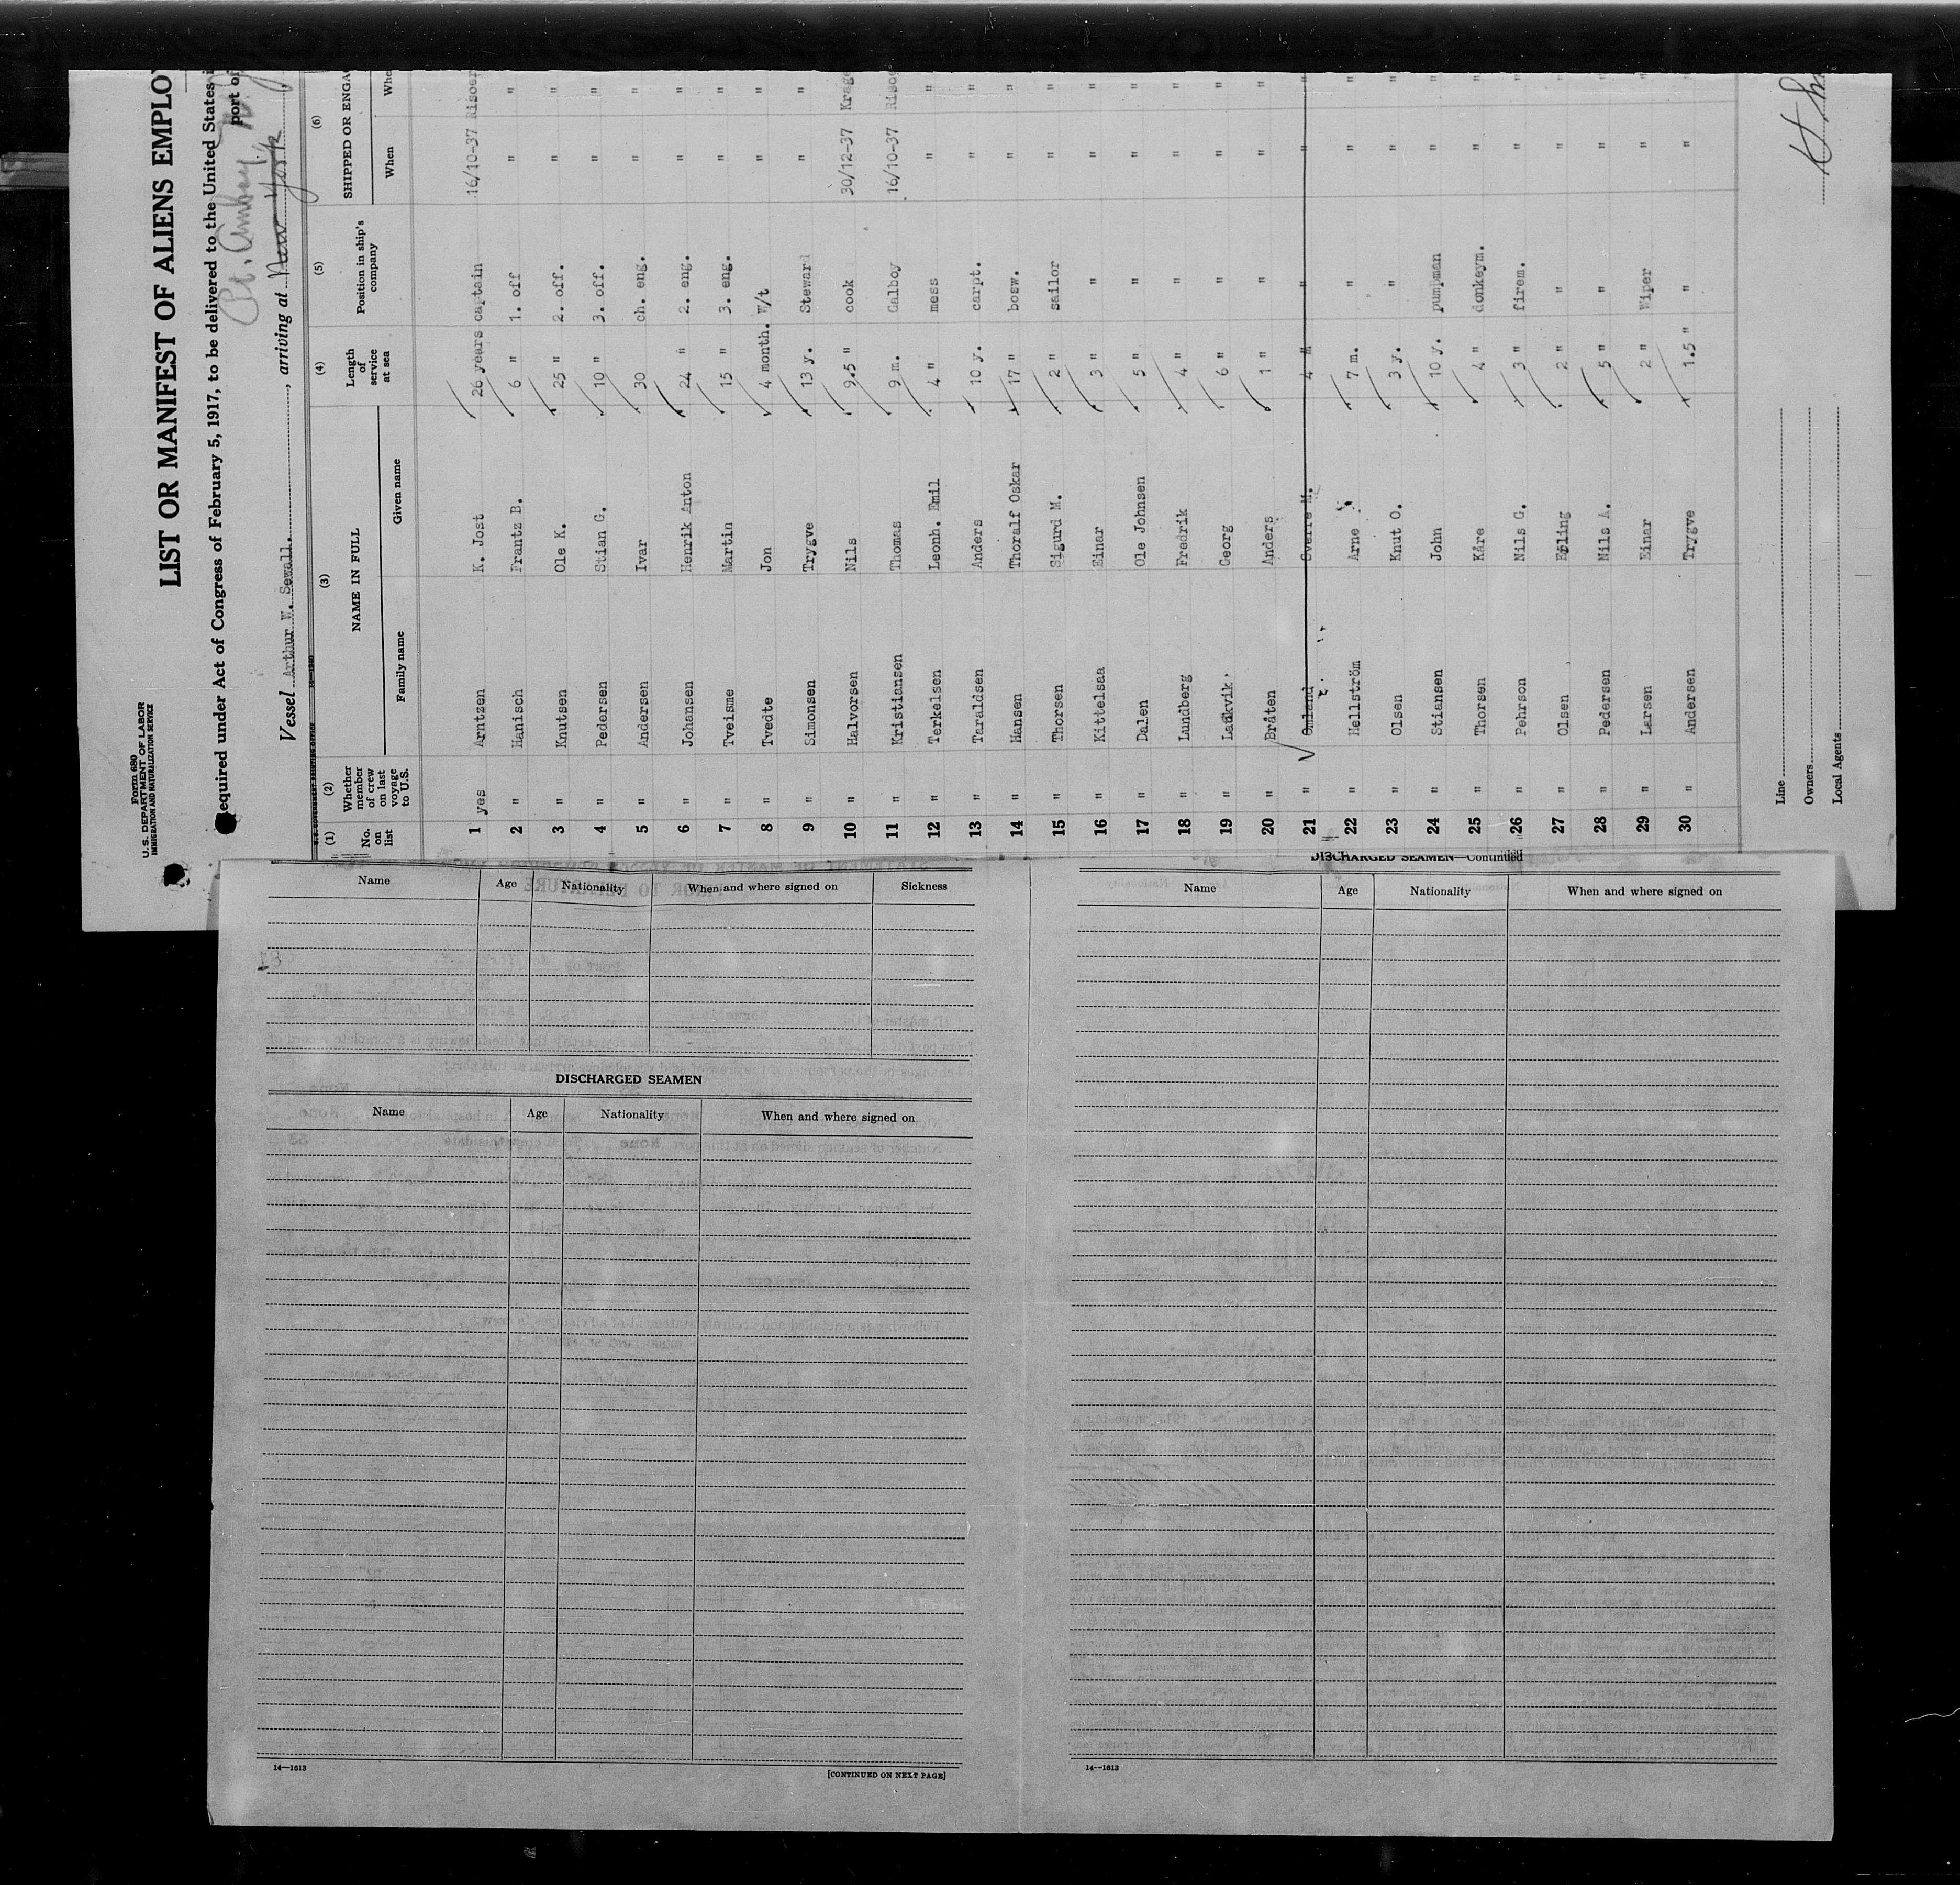 Form 680
U. S. DEPARTMENT OF LABOR
IMMIGRATION AND NATURALIZATION SERVICE
LIST OR MANIFEST OF ALIENS EMPLOY
Required under Act of Congress of February 5, 1917, to be delivered to the United States i
port of
Pt. Amboy,
Vessel Arthur W. Sewall. , arriving at New York
(1) (2) (3) (4) (5) (6)
No. on list
Whether member of crew on last voyage to U.S.
NAME IN FULL
Family name Given name
Length of service at sea
Position in ship's company
SHIPPED OR ENGAG
When Whe
1 yes Arntzen K. Jost 26 years captain 16/10-37 Risoer
2 " Hanisch Frantz B. 6 " 1. off " "
3 " Knutsen Ole K. 25 " 2. off. " "
4 " Pedersen Stian G. 10 " 3. off. " "
5 " Andersen Ivar 30 ch. eng. " "
6 " Johansen Henrik Anton 24 " 2. eng. " "
7 " Tveisme Martin 15 " 3. eng. " "
8 " Tvedte Jon 4 month. W/t " "
9 " Simonsen Trygve 13 y. Steward " "
10 " Halvorsen Nils 9.5 " cook 30/12-37 Krage
11 " Kristiansen Thomas 9 m. Galboy 16/10-37 Risoe
12 " Terkelsen Leonh. Emil 4 " mess " "
13 " Taraldsen Anders 10 y. carpt. " "
14 " Hansen Thoralf Oskar 17 " bosw. " "
15 " Thorsen Sigurd M. 2 " sailor " "
16 " Kittelsaa Einar 3 " " " "
17 " Dalen Ole Johnsen 5 " " " "
18 " Lundberg Fredrik 4 " " " "
19 " Laukvik Georg 6 " " " "
20 " Bråten Anders 1 " " " "
21 " Omland Sverre M. 4 " " " "
22 " Hellström Arne 7 m. " " "
23 " Olsen Knut O. 3 y. " " "
24 " Stiansen John 10 y. pumpman " "
25 " Thorsen Kåre 4 " donkeym. " "
26 " Pehrson Nils G. 3 " firem. " "
27 " Olsen Erling 2 " " " "
28 " Pedersen Nils A. 5 " " " "
29 " Larsen Einar 2 " Wiper " "
30 " Andersen Trygve 1.5 " " " "
Line
Owners
Local Agents
Name Age Nationality When and where signed on Sickness
DISCHARGED SEAMEN
Name Age Nationality When and where signed on
14—1613
[CONTINUED ON NEXT PAGE]
DISCHARGED SEAMEN—Continued
Name Age Nationality When and where signed on
14—1613